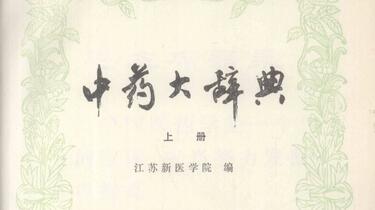 中药大辞典
上册
江苏新医学院 编